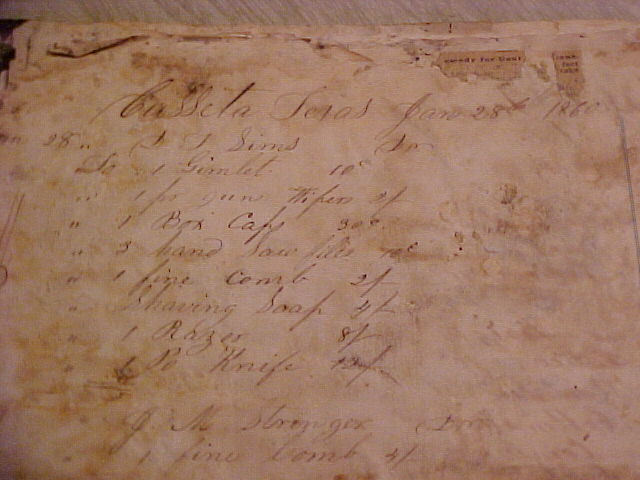 ready for Usual
Cusseta Texas Jan 28th 1860
28 " S T Sims Dr
To 1 Gimlet 10c
" 1 pr gun Wipers 2/
" 1 Box Caps 30c
" 3 hand Saw files 10c
" 1 fine Comb 2/
" Shaving Soap 4/
" 1 Razer 8/
" 1 Po Knife 12/
J. M Stringer Dr
" 1 fine Comb 4/